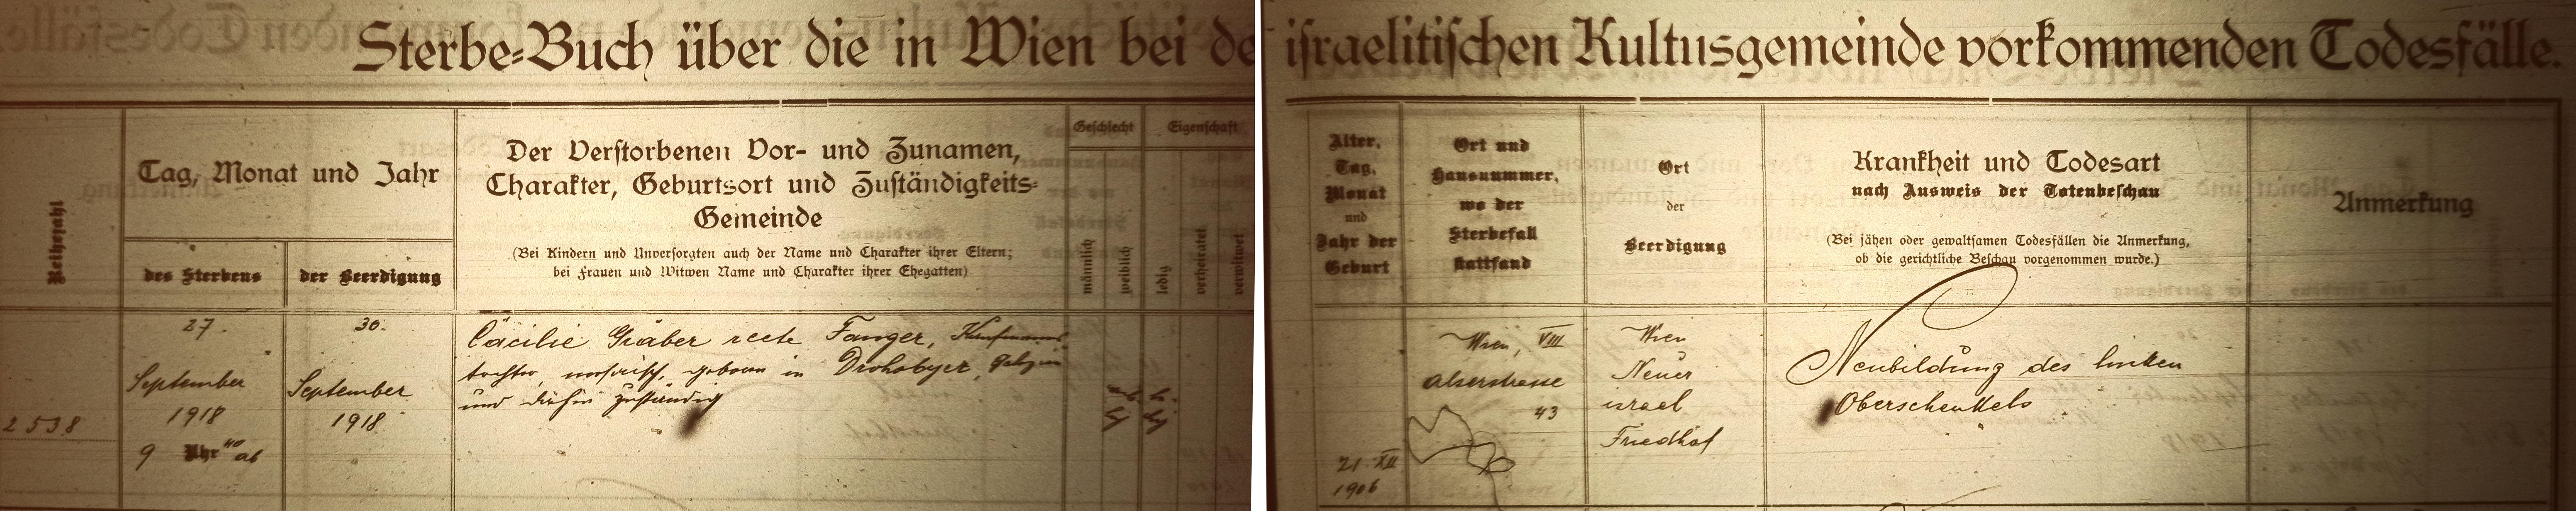 Sterbe=Buch über die in Wien bei de israelitischen Kultusgemeinde vorkommenden Todesfälle.
Reihezahl
Tag, Monat und Jahr
des Sterbens
der Beerdigung
Der Verstorbenen Vor- und Zunamen,
Charakter, Geburtsort und Zuständigkeits=
Gemeinde
(Bei Kindern und Unversorgten auch der Name und Charakter ihrer Eltern;
bei Frauen und Witwen Name und Charakter ihrer Ehegatten)
Geschlecht
männlich
weiblich
Eigenschaft
ledig
verheiratet
verwitwet
Alter,
Tag,
Monat
und
Jahr der
Geburt
Ort und
Hausnummer,
wo der
Sterbefall
stattfand
Ort
der
Beerdigung
Krankheit und Todesart
nach Ausweis der Totenbeschau
(Bei jähen oder gewaltsamen Todesfällen die Anmerkung,
ob die gerichtliche Beschau vorgenommen wurde.)
Anmerkung
2538
27.
September
1918
9 Uhr 40 ab
30.
September
1918
Cäcilie Gräber recte Fanger, Kaufmanns
tochter, mosaisch, geboren in Drohobycz, Galizien
und dahin zuständig
21 XII
1906
Wien, VIII
Alserstrasse
43
Wien
Neuer
israel
Friedhof
Neubildung des linken
Oberschenkels